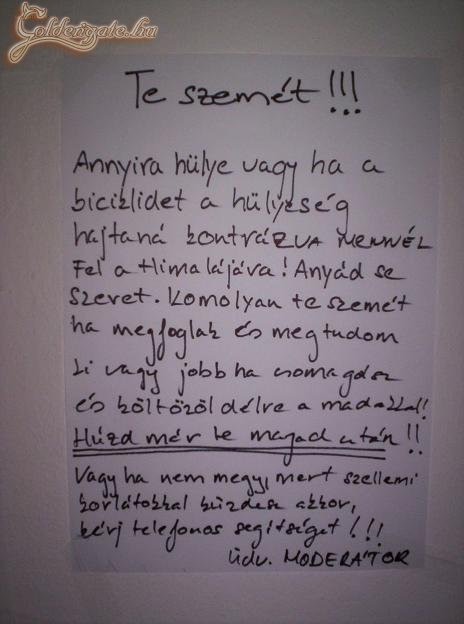 Goldengate.hu
Te szemét!!!
Annyira hülye vagy ha a
biciklidet a hülyeség
hajtaná kontrázVA MENNÉL
Fel a Himalájára! Anyád se
szeret. Komolyan te szemét
ha megfoglak és megtudom
ki vagy jobb ha csomagolsz
és költözöl délre a madakkal!
Húzd már le magad után!!
Vagy ha nem megy, mert szellemi
korlátokkal küzdesz akkor,
kérj telefonos segítséget!!!
Üdv. MODERÁTOR